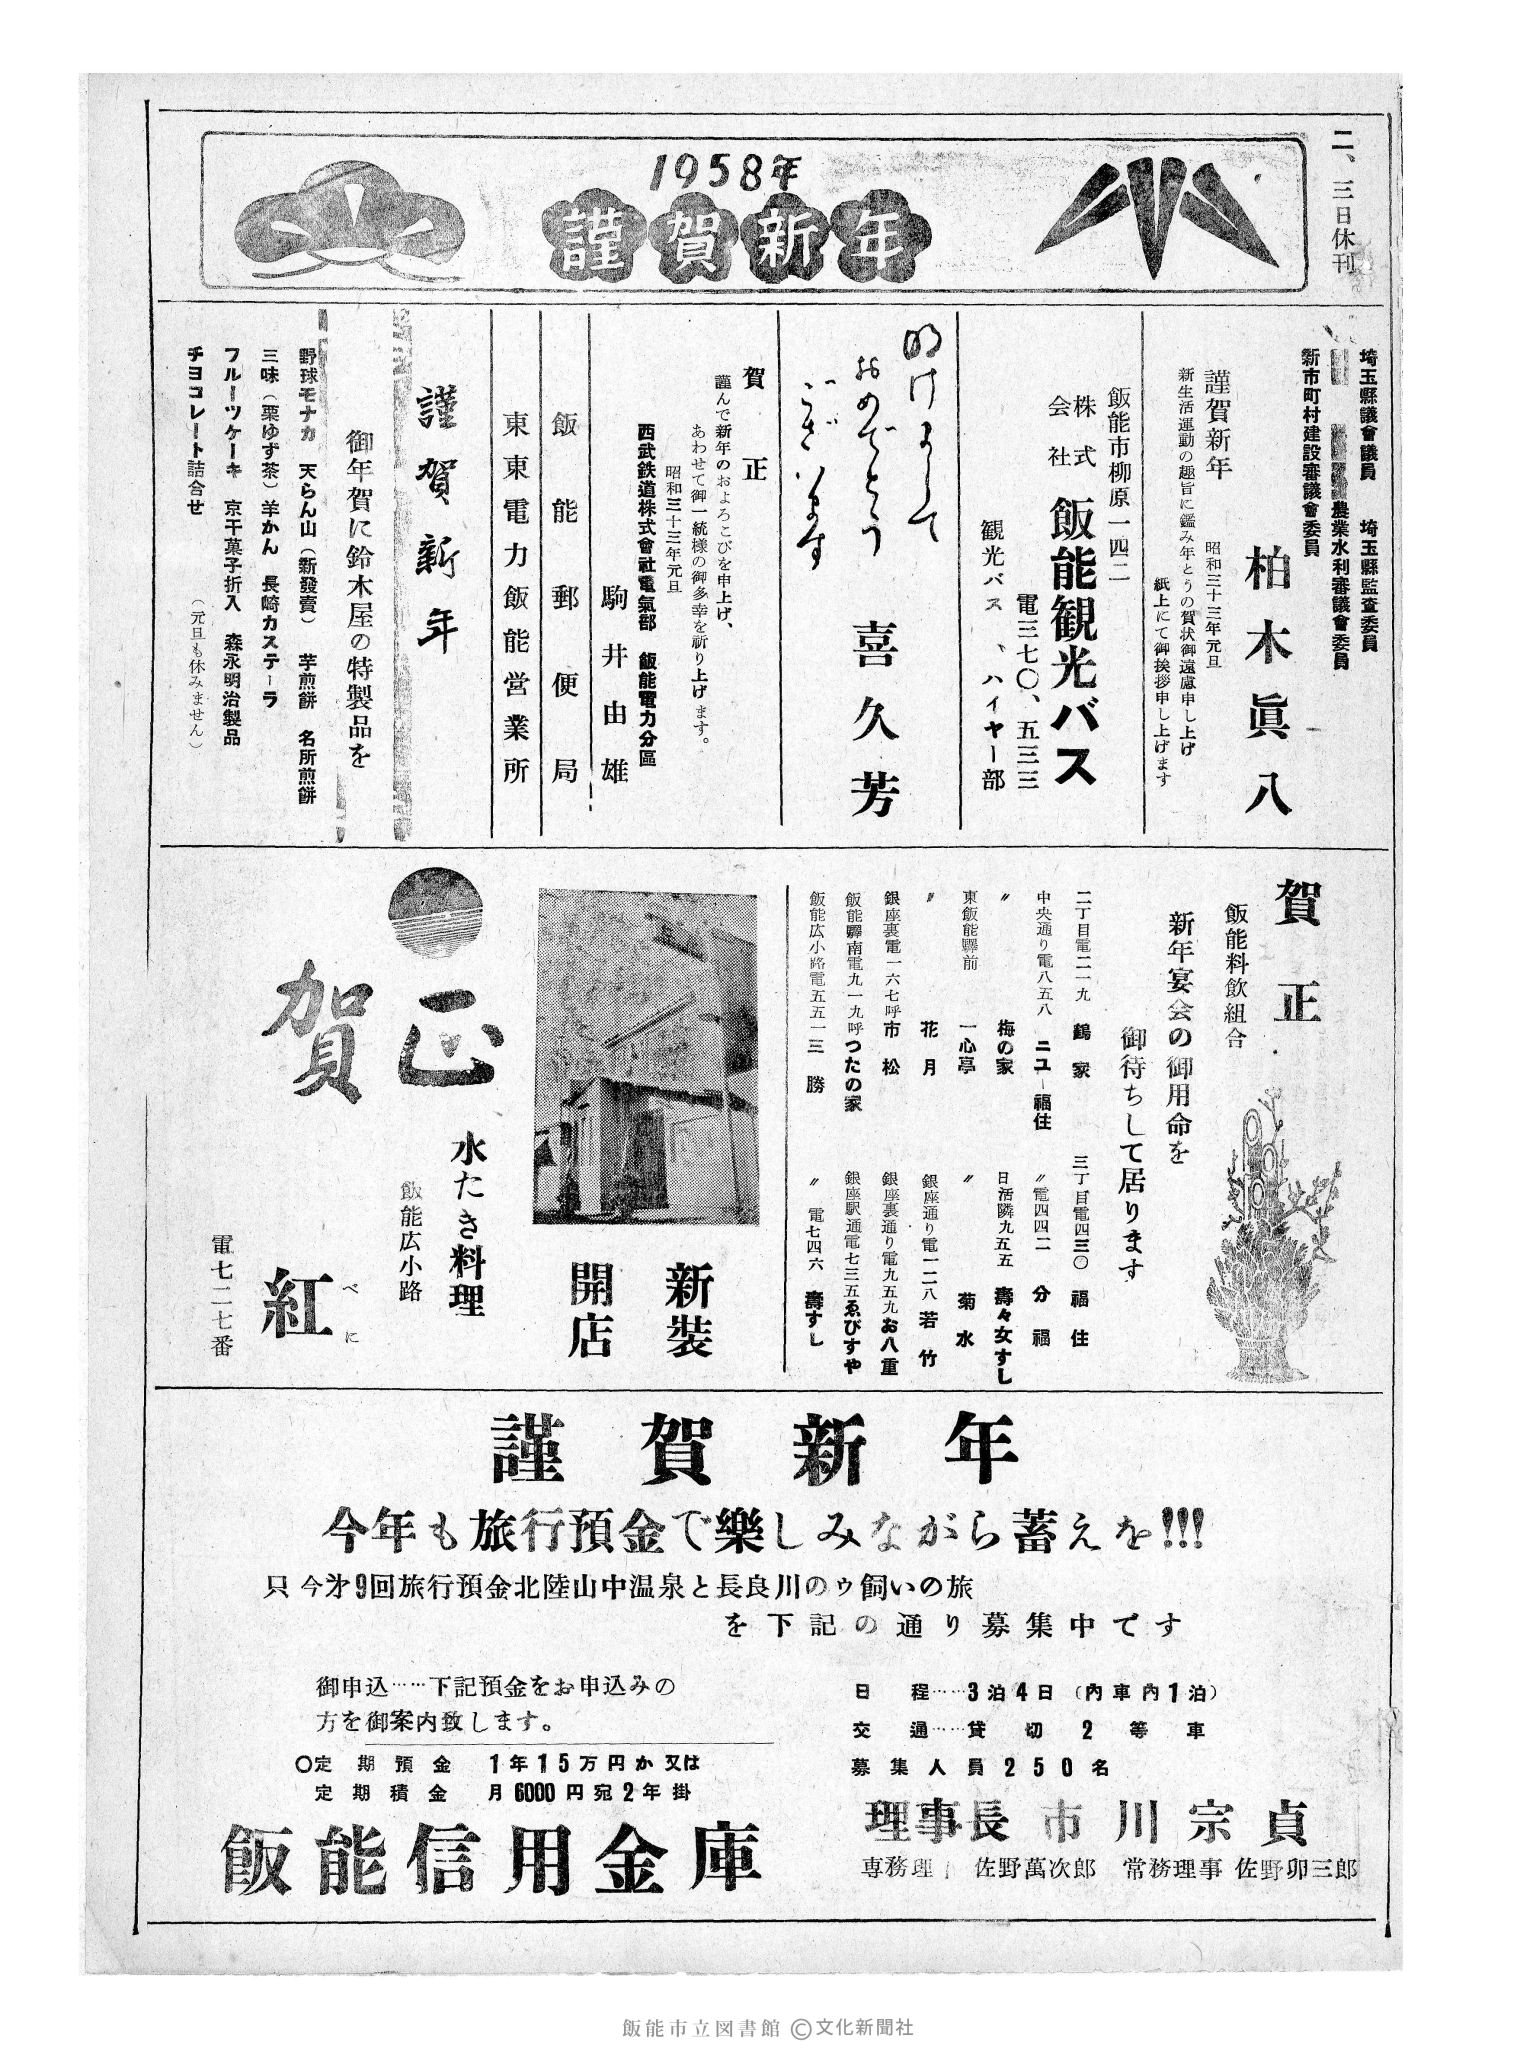 二、三日休刊
1958年
謹賀新年
埼玉縣議會議員　埼玉縣監査委員
農業水利審議會委員
新市町村建設審議會委員
柏木眞八
謹賀新年　昭和三十三年元旦
新生活運動の趣旨に鑑み年とうの賀状御遠慮申し上げ
紙上にて御挨拶申し上げます
飯能市柳原一四二
株式会社　飯能観光バス
電三七〇、五三三
観光バス、ハイヤー部
明けまして
おめでとう
ございます
喜久芳
賀正
謹んで新年のおよろこびを申上げ、
あわせて御一統様の御多幸を祈り上げます。
昭和三十三年元旦
西武鉄道株式會社電氣部　飯能電力分區
駒井由雄
飯能郵便局
東東電力飯能営業所
謹賀新年
御年賀に鈴木屋の特製品を
野球モナカ　天らん山（新發賣）　芋煎餅　名所煎餅
三味（栗ゆず茶）羊かん　長崎カステーラ
フルーツケーキ　京干菓子折入　森永明治製品
チヨコレート詰合せ　（元旦も休みません）
賀正
飯能料飲組合
新年宴会の御用命を
御待ちして居ります
二丁目電二一九　鶴家
三丁目電四三〇　福住
中央通り電八五八　ニユー福住
〃電四四二　分福
〃　梅の家
日活隣九五五　壽々女すし
東飯能驛前　一心亭
〃　菊水
〃　花月
銀座通り電一二八　若竹
銀座裏電一六七呼　市松
銀座裏通り電九五九　お八重
飯能驛南電九一九呼　つたの家
銀座駅通電七三五　ゑびすや
飯能広小路電五五一　三勝
〃　電七四六　壽すし
新装
開店
賀正
水たき料理
飯能広小路
紅
べに
電七二七番
謹賀新年
今年も旅行預金で樂しみながら蓄えを!!!
只今才9回旅行預金北陸山中温泉と長良川のゥ飼いの旅
を下記の通り募集中です
御申込……下記預金をお申込みの
方を御案内致します。
〇定期預金　1年15万円か又は
定期積金　月6000円宛2年掛
日程……3泊4日（内車内1泊）
交通……貸切2等車
募集人員250名
飯能信用金庫
理事長　市川宗貞
専務理　佐野萬次郎　常務理事　佐野卯三郎
飯能市立図書館 ©文化新聞社